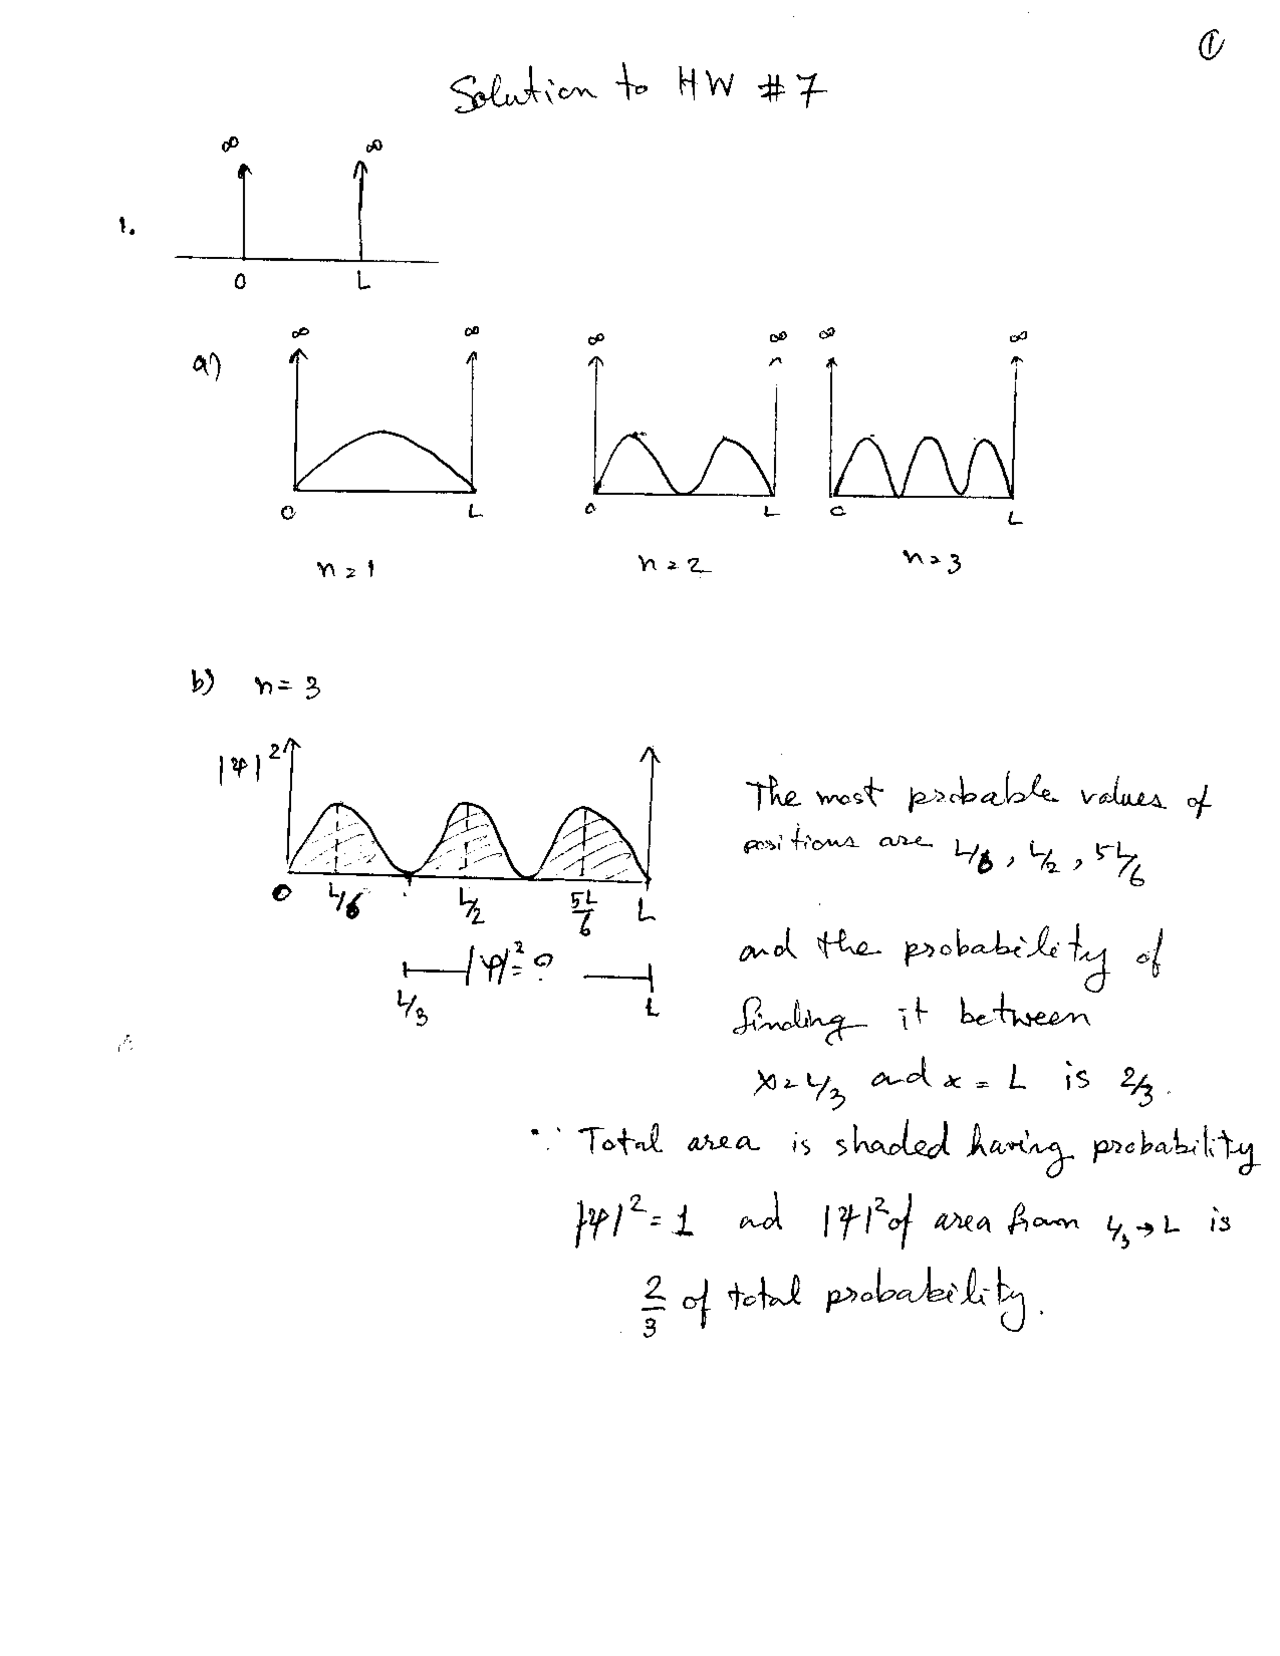 ①
Solution to HW #7
∞ ∞
1.
0 L
∞ ∞ ∞ ∞ ∞ ∞
a)
0 L 0 L 0 L
n=1 n=2 n=3
b) n=3
|ψ|²
0 L/6 L/2 5L/6 L
|ψ|²=?
L/3 L
The most probable values of
positions are L/6, L/2, 5L/6
and the probability of
finding it between
x=L/3 and x = L is 2/3.
∵ Total area is shaded having probability
|ψ|²=1 and |ψ|² of area from L/3→L is
2/3 of total probability.